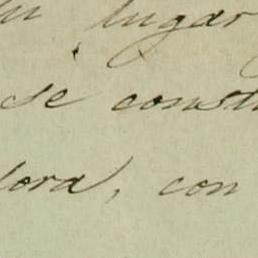 lugar
se const
lora, con